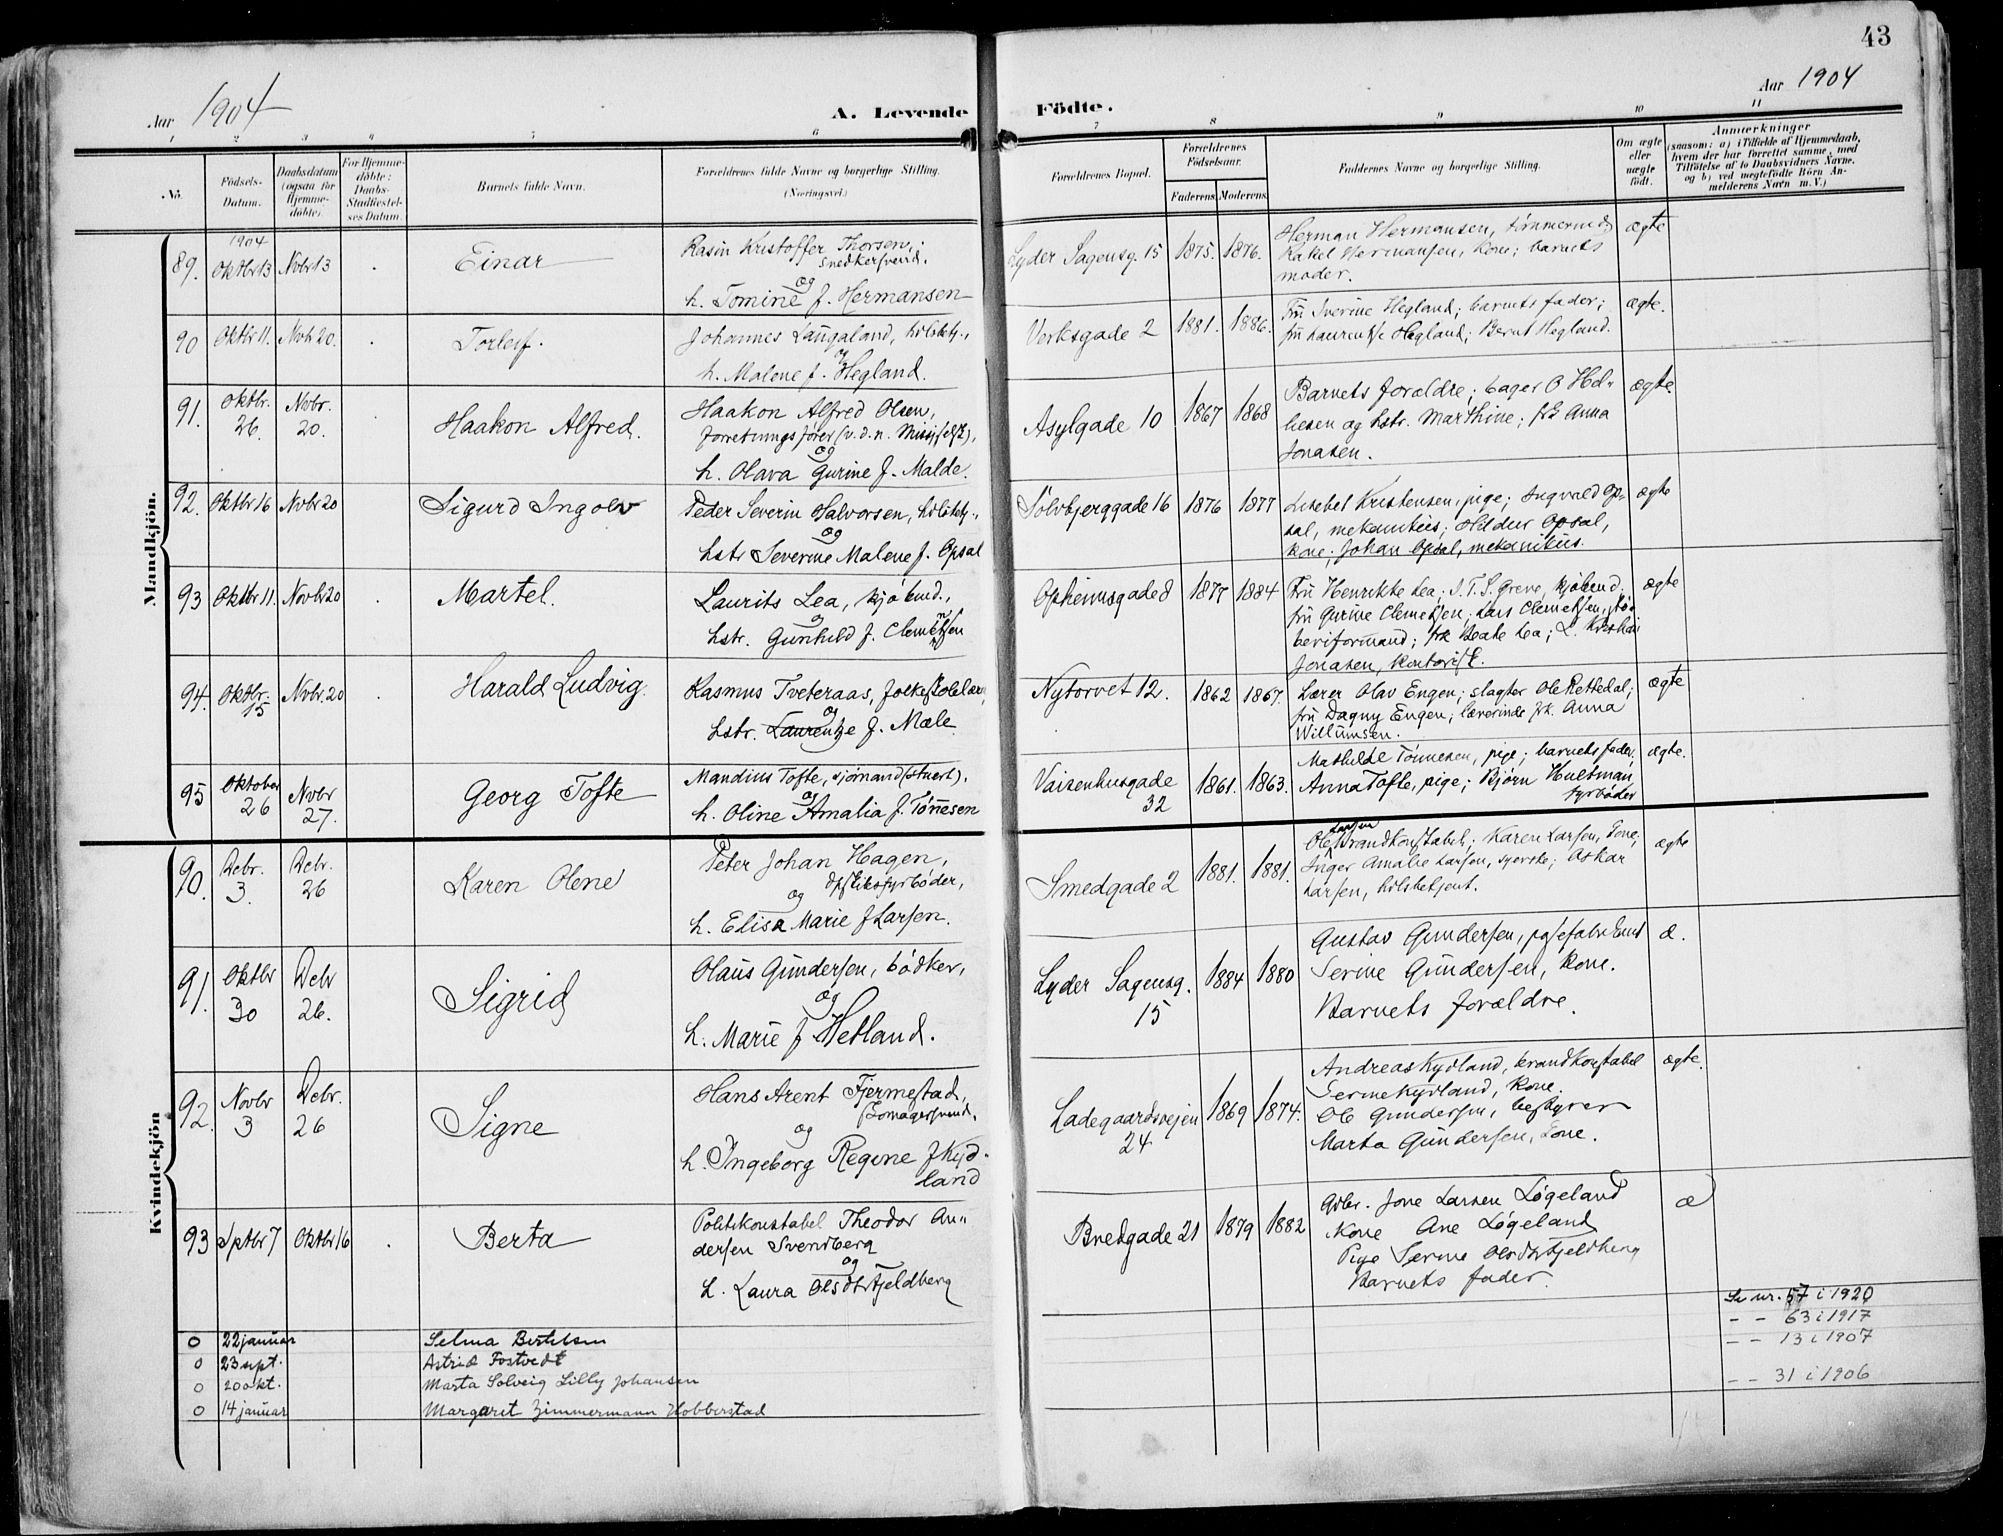 43
Aar 1904
A. Levende
Födte.
Aar 1904
1 2 3 4 5 6 7 8 9 10 11
No.
Födsels-Datum.
Daabsdatum (ogsaa for Hjemmedöbte).
For Hjemmedöbte: Daabs-Stadfæstelses Datum.
Barnets fulde Navn.
Forældrenes fulde Navne og borgerlige Stilling.
(Næringsvei.)
Forældrenes Bopæl.
Forældrenes Födselsaar.
Faderens. Moderens.
Faddernes Navne og borgerlige Stilling.
Om ægte eller uægte födt.
Anmærkninger
(saasom: a) i Tilfælde af Hjemmedaab, hvem der har forrettet samme, med Tilföielse af to Daabsvidners Navne, og b) ved uægtefödte Börn Anmelderens Navn m. V.)
Mandkjön.
89. 1904 Oktbr 13 Novbr 13 Einar
Rasm Kristoffer Thorsen, snedkersvend.
og
h. Tomine f. Hermansen
Lyder Sagensg. 15 1875. 1876.
Herman Hermansen, tømmermd
Rakel Hermansen, kone; barnets
moder.
ægte
90 Oktbr 11. Novbr 20. Torleif.
Johannes Laugaland,
og
h. Malene f. Hegland.
Verksgade 2 1881. 1886.
Fru Iverine Hegland; barnets fader;
fru Laurentse Hegland; Bernt Hegland.
ægte.
91. Oktbr. 26. Novbr. 20. Haakon Alfred.
Haakon Alfred Olsen,
forretningsfører (v. d. n. Missj selsk),
og
h. Olava Gurine f. Malde.
Asylgade 10 1867 1868
Barnets forældre; bager O Hel-
lesen og hstr. Marthine; frk Anna
Jonasen.
ægte
92. Oktbr 16 Novbr 20 Sigurd Ingolv
Peder Severin Halvorsen,
og
hstr Severine Malene f. Opsal
Sølvbjerggade 16 1876 1877
Lisebet Kristensen, pige; Ingvald Op-
sal, mekanikus; Hildur Opsal,
kone; Johan Opsal, mekanikus.
ægte
93 Oktbr 11. Novbr 20 Martel.
Laurits Lea, kjøbmd.,
og
hstr. Gunhild f. Clemetsen
Opheimsgade 8 1877 1884
Fru Henrikke Lea; J. T. S. Greve, kjøbmd.
fru Gurine Clemetsen; Lars Clemetsen,
beriformand; frk Beate Lea; L. Kristian
Jonasen, kontorist.
ægte
94. Oktbr. 15 Novbr. 20 Harald Ludvig.
Rasmus Tveteraas, folkeskolelærer,
og
hstr. Laurentze f. Mæle
Nytorvet 12. 1862 1867.
Lærer Olav Engen; slagter Ole Rettedal;
fru Dagny Engen; lærerinde frk. Anna
Willumsen.
ægte
95 Oktober 26 Novbr 27. Georg Tofte
Mandius Tofte, sjømand (stuert).
og
h. Oline Amalia f. Tønnesen
Vaisenhusgade 32 1861. 1863.
Mathilde Tønnesen, pige; barnets fader;
Anna Tofte, pige; Bjørn Hultman,
fyrbøder
ægte.
Kvindekjön
90. Debr. 3. Debr. 26 Karen Olene
Peter Johan Hagen,
fyrbøder,
og
h. Elisa Marie f Larsen.
Smedgade 2 1881. 1881.
Ole Larsen brandkonstabel; Karen Larsen, kone;
Inger Amalie Larsen, syerske; Oskar
Larsen,
ægte
91. Oktbr 30 Debr 26. Sigrid
Olaus Gundersen, bødker,
og
h. Marie f Hetland.
Lyder Sagensg. 15 1884 1880
Gustav Gundersen,
Serine Gundersen, kone.
Barnets forældre.
æ.
92. Novbr 3 Debr. 26 Signe
Hans Arent Fjermestad,
skomagersvend.
og
h. Ingeborg Regine f Kyd-
land
Ladegaardsvejen 24 1869 1874.
Andreas Kydland, brandkonstabel
Serine Kydland, kone.
Ole Gundersen, bestyrer
Marta Gundersen, kone.
ægte.
93 Sptbr 7 Oktbr 16 Berta
Politikonstabel Theodor An-
dersen Svendberg
og
h. Laura Olsdtr Fjeldberg
Bredgade 21 1879 1882
Arbr. Jone Larsen Løgeland
Kone Ane Løgeland
Pige Serine Olsdtr Fjeldberg
Barnets fader.
æ
0 22 januar Selma Bertelsen Se nr. 57 i 1920
0 23 sept. Astrid Fostvedt - - 63 i 1917
0 20 okt. Marta Solveig Lilly Johansen - - 13 i 1907
0 14 januar Margaret Zimmermann Hobberstad - - 31 i 1906